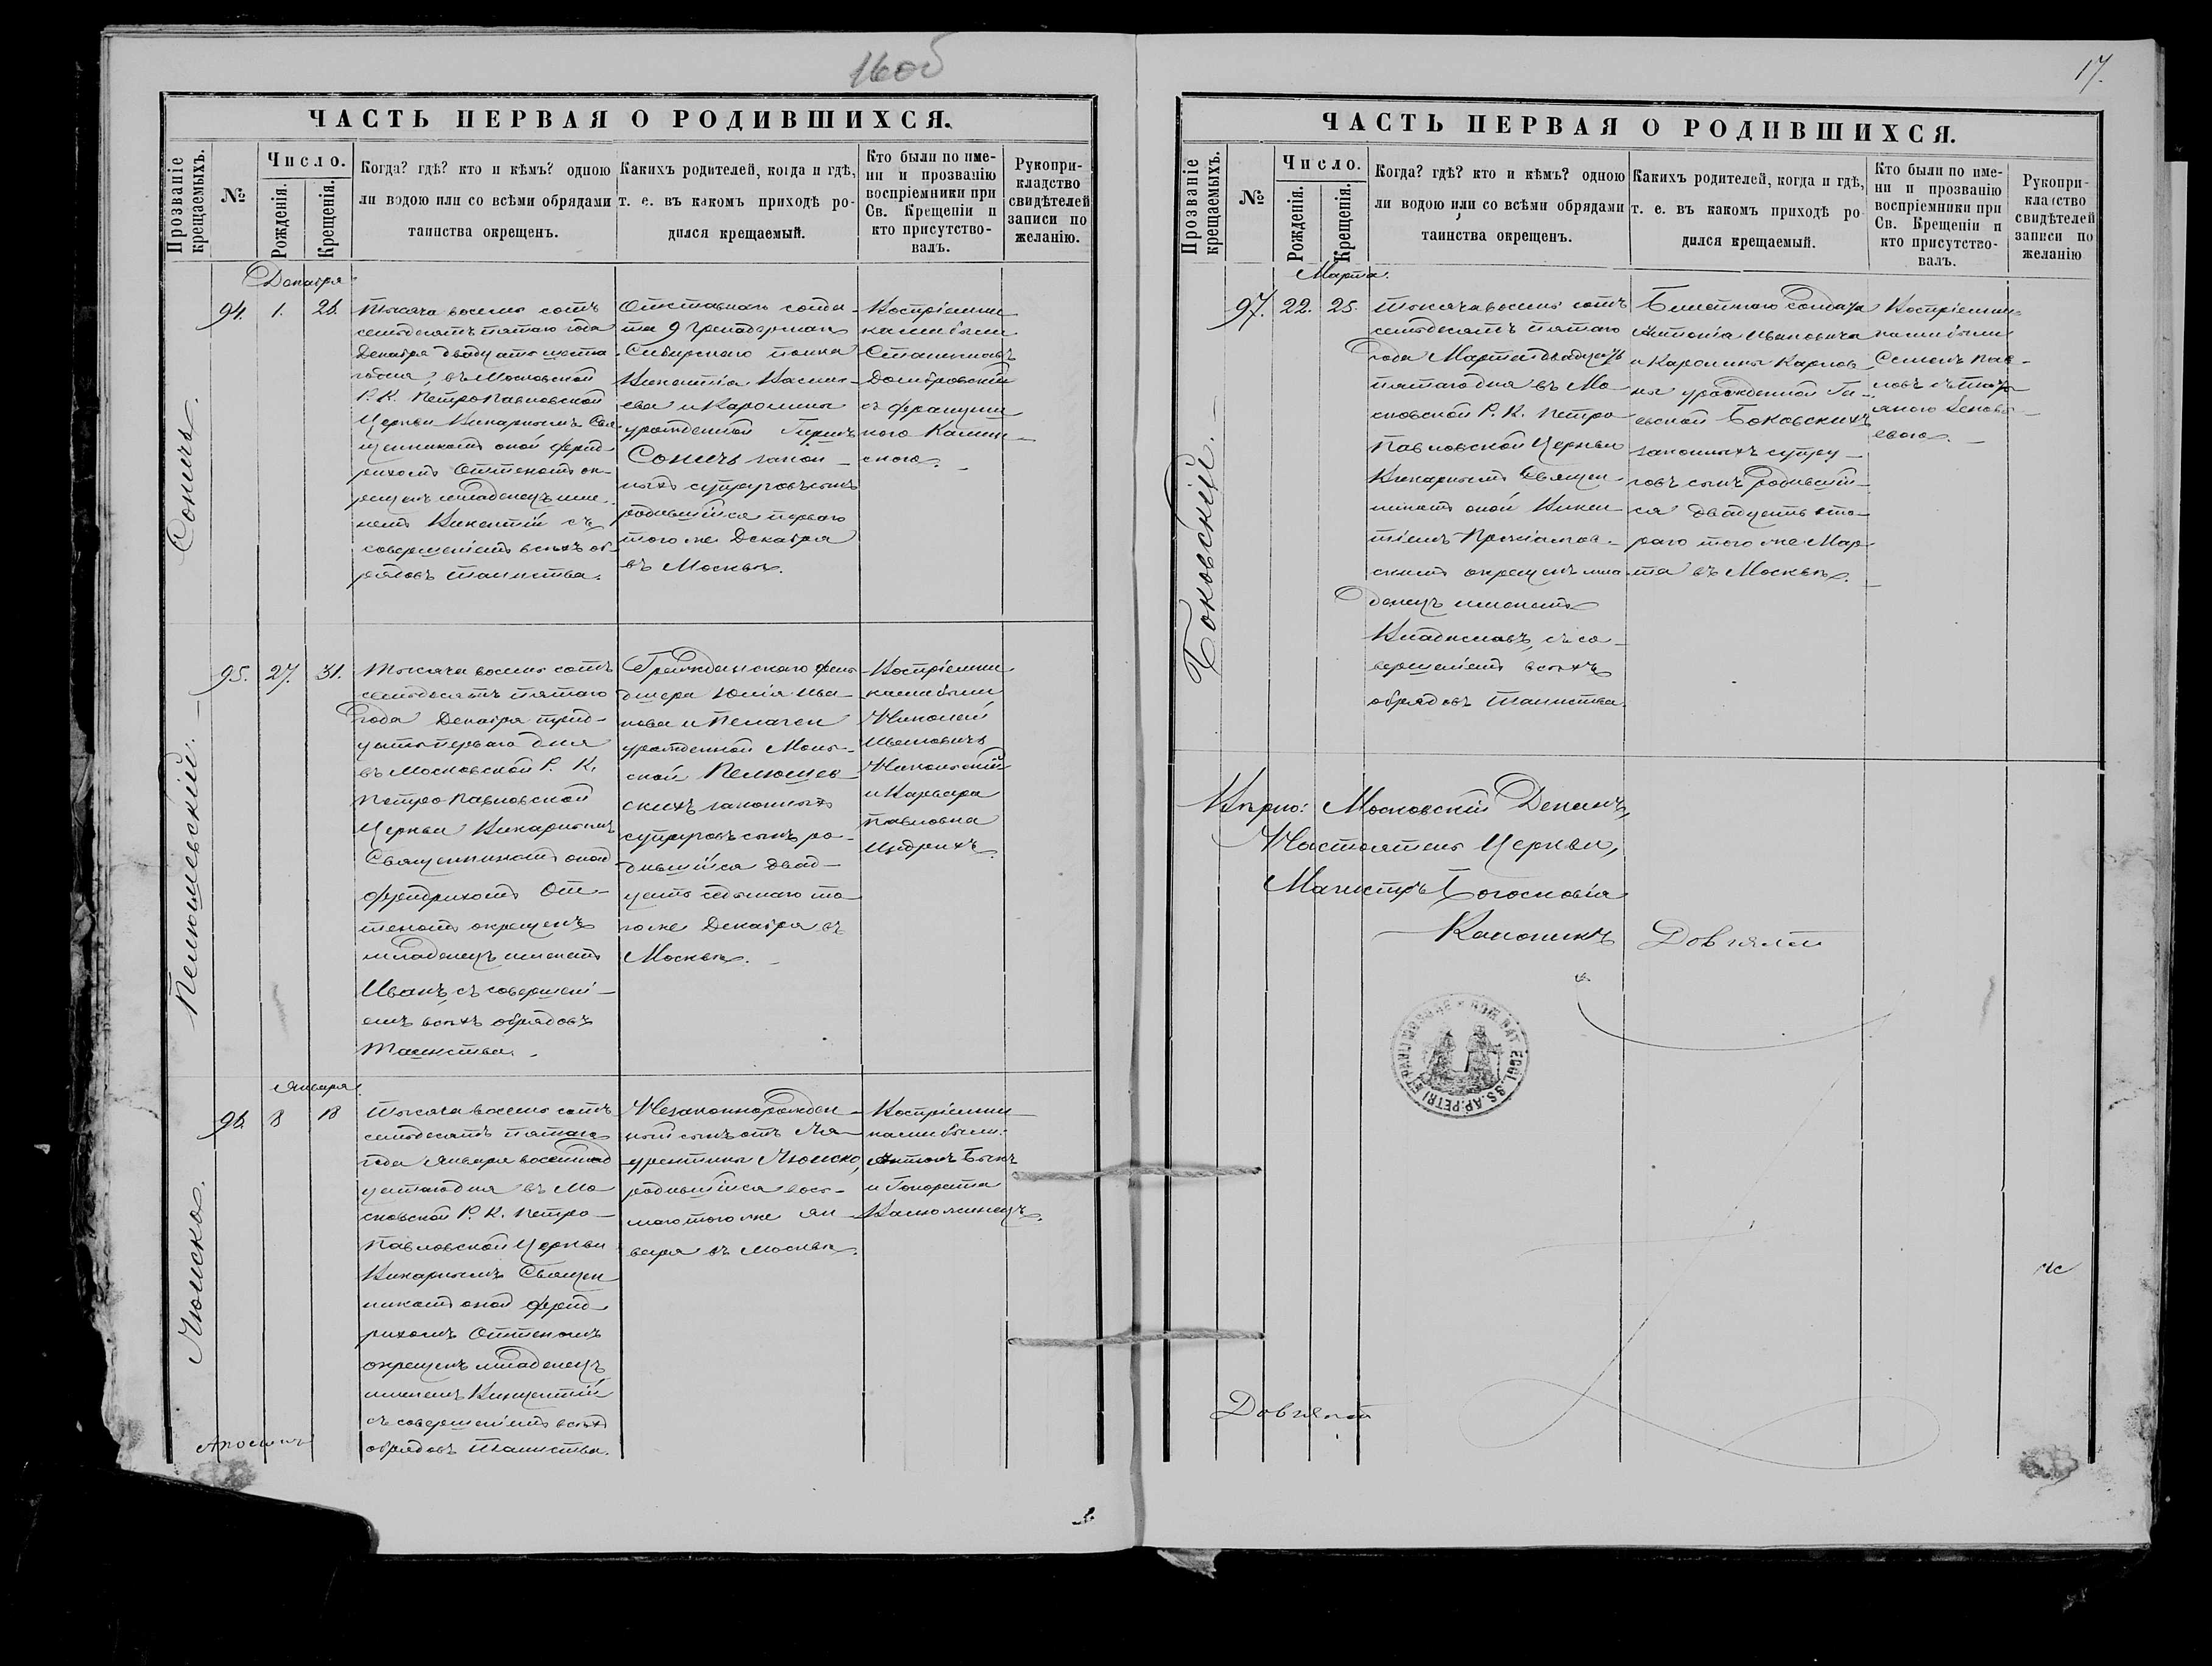 16об
ЧАСТЬ ПЕРВАЯ О РОДИВШИХСЯ.
Прозваніе крещаемыхъ.
№
Число.
Рожденія.
Крещенія.
Когда? гдѣ? кто и кѣмъ? одною
ли водою или со всѣми обрядами
таинства окрещенъ.
Какихъ родителей, когда и гдѣ,
т. е. въ какомъ приходѣ ро-
дился крещаемый.
Кто были по име-
ни и прозванію
воспріемники при
Св. Крещеніи и
кто присутство-
валъ.
Рукопри-
кладство
свидѣтелей
записи по
желанію.
Декабря
Соничъ.
94.
1.
26.
Тысяча восемь сотъ
семьдесятъ пятаго года
Декабря двадцать шеста-
го дня, въ Московской
Р. К. Петро Павловской
Церкви Викарнымъ Свя-
щенникомъ оной Фрид-
рихомъ Оттеномъ ок-
рещенъ младенецъ име-
немъ Викентій съ
совершеніемъ всѣхъ об-
рядовъ таинства.
Отставнаго солда-
та 9 Гренадерскаго
Сибирскаго полка
Викентія
и Каролины
урожденной
Соничъ закон-
ныхъ супруговъ сынъ
родившійся перваго
того же Декабря
въ Москвѣ.
Воспріемни-
ками были
Станиславъ
Домбровскій
съ Франциш-
кою
Пелюшевскій.
95.
27.
31.
Тысяча восемь сотъ
семьдесятъ пятаго
года Декабря трид-
цать перваго дня
въ Московской Р. К.
Петро Павловской
Церкви Викарнымъ
Священникомъ оной
Фридрихомъ От-
теномъ окрещенъ
младенецъ именемъ
Иванъ, съ совершені-
емъ всѣхъ обрядовъ
Таинства.
Гражданскаго фель-
дшера Юлія Ива-
нова и Пелагеи
урожденной
Пелюшев-
скихъ законныхъ
супруговъ сынъ ро-
дившійся двад-
цать седьмаго то-
го же Декабря въ
Москвѣ.
Воспріемни-
ками были
Николай
Ивановичъ
и Варвара
Павловна
Января
Люиско.
96.
8
18
Тысяча восемь сотъ
семьдесятъ пятаго
года Января восемнад-
цатаго дня въ Мо-
сковской Р. К. Петро-
Павловской Церкви
Викарнымъ Священ-
никомъ оной Фрид-
рихомъ Оттеномъ
окрещенъ младенецъ
именемъ Викентій
съ совершеніемъ всѣхъ
обрядовъ Таинства.
Незаконнорожден-
ный сынъ отъ
Люиско,
родившійся вось-
маго того же Ян-
варя въ Москвѣ.
Воспріемни-
ками были:
Антонъ Быкъ
и Гонората
17.
ЧАСТЬ ПЕРВАЯ О РОДИВШИХСЯ.
Прозваніе крещаемыхъ.
№
Число.
Рожденія.
Крещенія.
Когда? гдѣ? кто и кѣмъ? одною
ли водою или со всѣми обрядами
таинства окрещенъ.
Какихъ родителей, когда и гдѣ,
т. е. въ какомъ приходѣ ро-
дился крещаемый.
Кто были по име-
ни и прозванію
воспріемники при
Св. Крещеніи и
кто присутство-
валъ.
Рукопри-
кладство
свидѣтелей
записи по
желанію
Марта.
Боковскій.
97.
22.
25.
Тысяча восемь сотъ
семьдесятъ пятаго
года Марта двадцать
пятаго дня въ Мо-
сковской Р. К. Петро
Павловской Церкви
Викарнымъ Священ-
никомъ оной Викен-
тіемъ
скимъ окрещенъ мла-
денецъ именемъ
Владиславъ, съ со-
вершеніемъ всѣхъ
обрядовъ Таинства.
Билетнаго Солдата
Антонія Ивановича
и Каролины Карлов-
ны урожденной
Боковскихъ
законныхъ супру-
говъ сынъ родившій-
ся двадцать вто-
раго того же Мар-
та въ Москвѣ.
Воспріемни-
ками были
Семенъ Пав-
ловъ
Вѣрно: Московскій Деканъ,
Настоятель Церкви,
Магистръ Богословія
Каноникъ Довгялло
ROM. CAT. ECCL. SS. AP. PETRI ET PAULI MOSQUAE
Довгялло